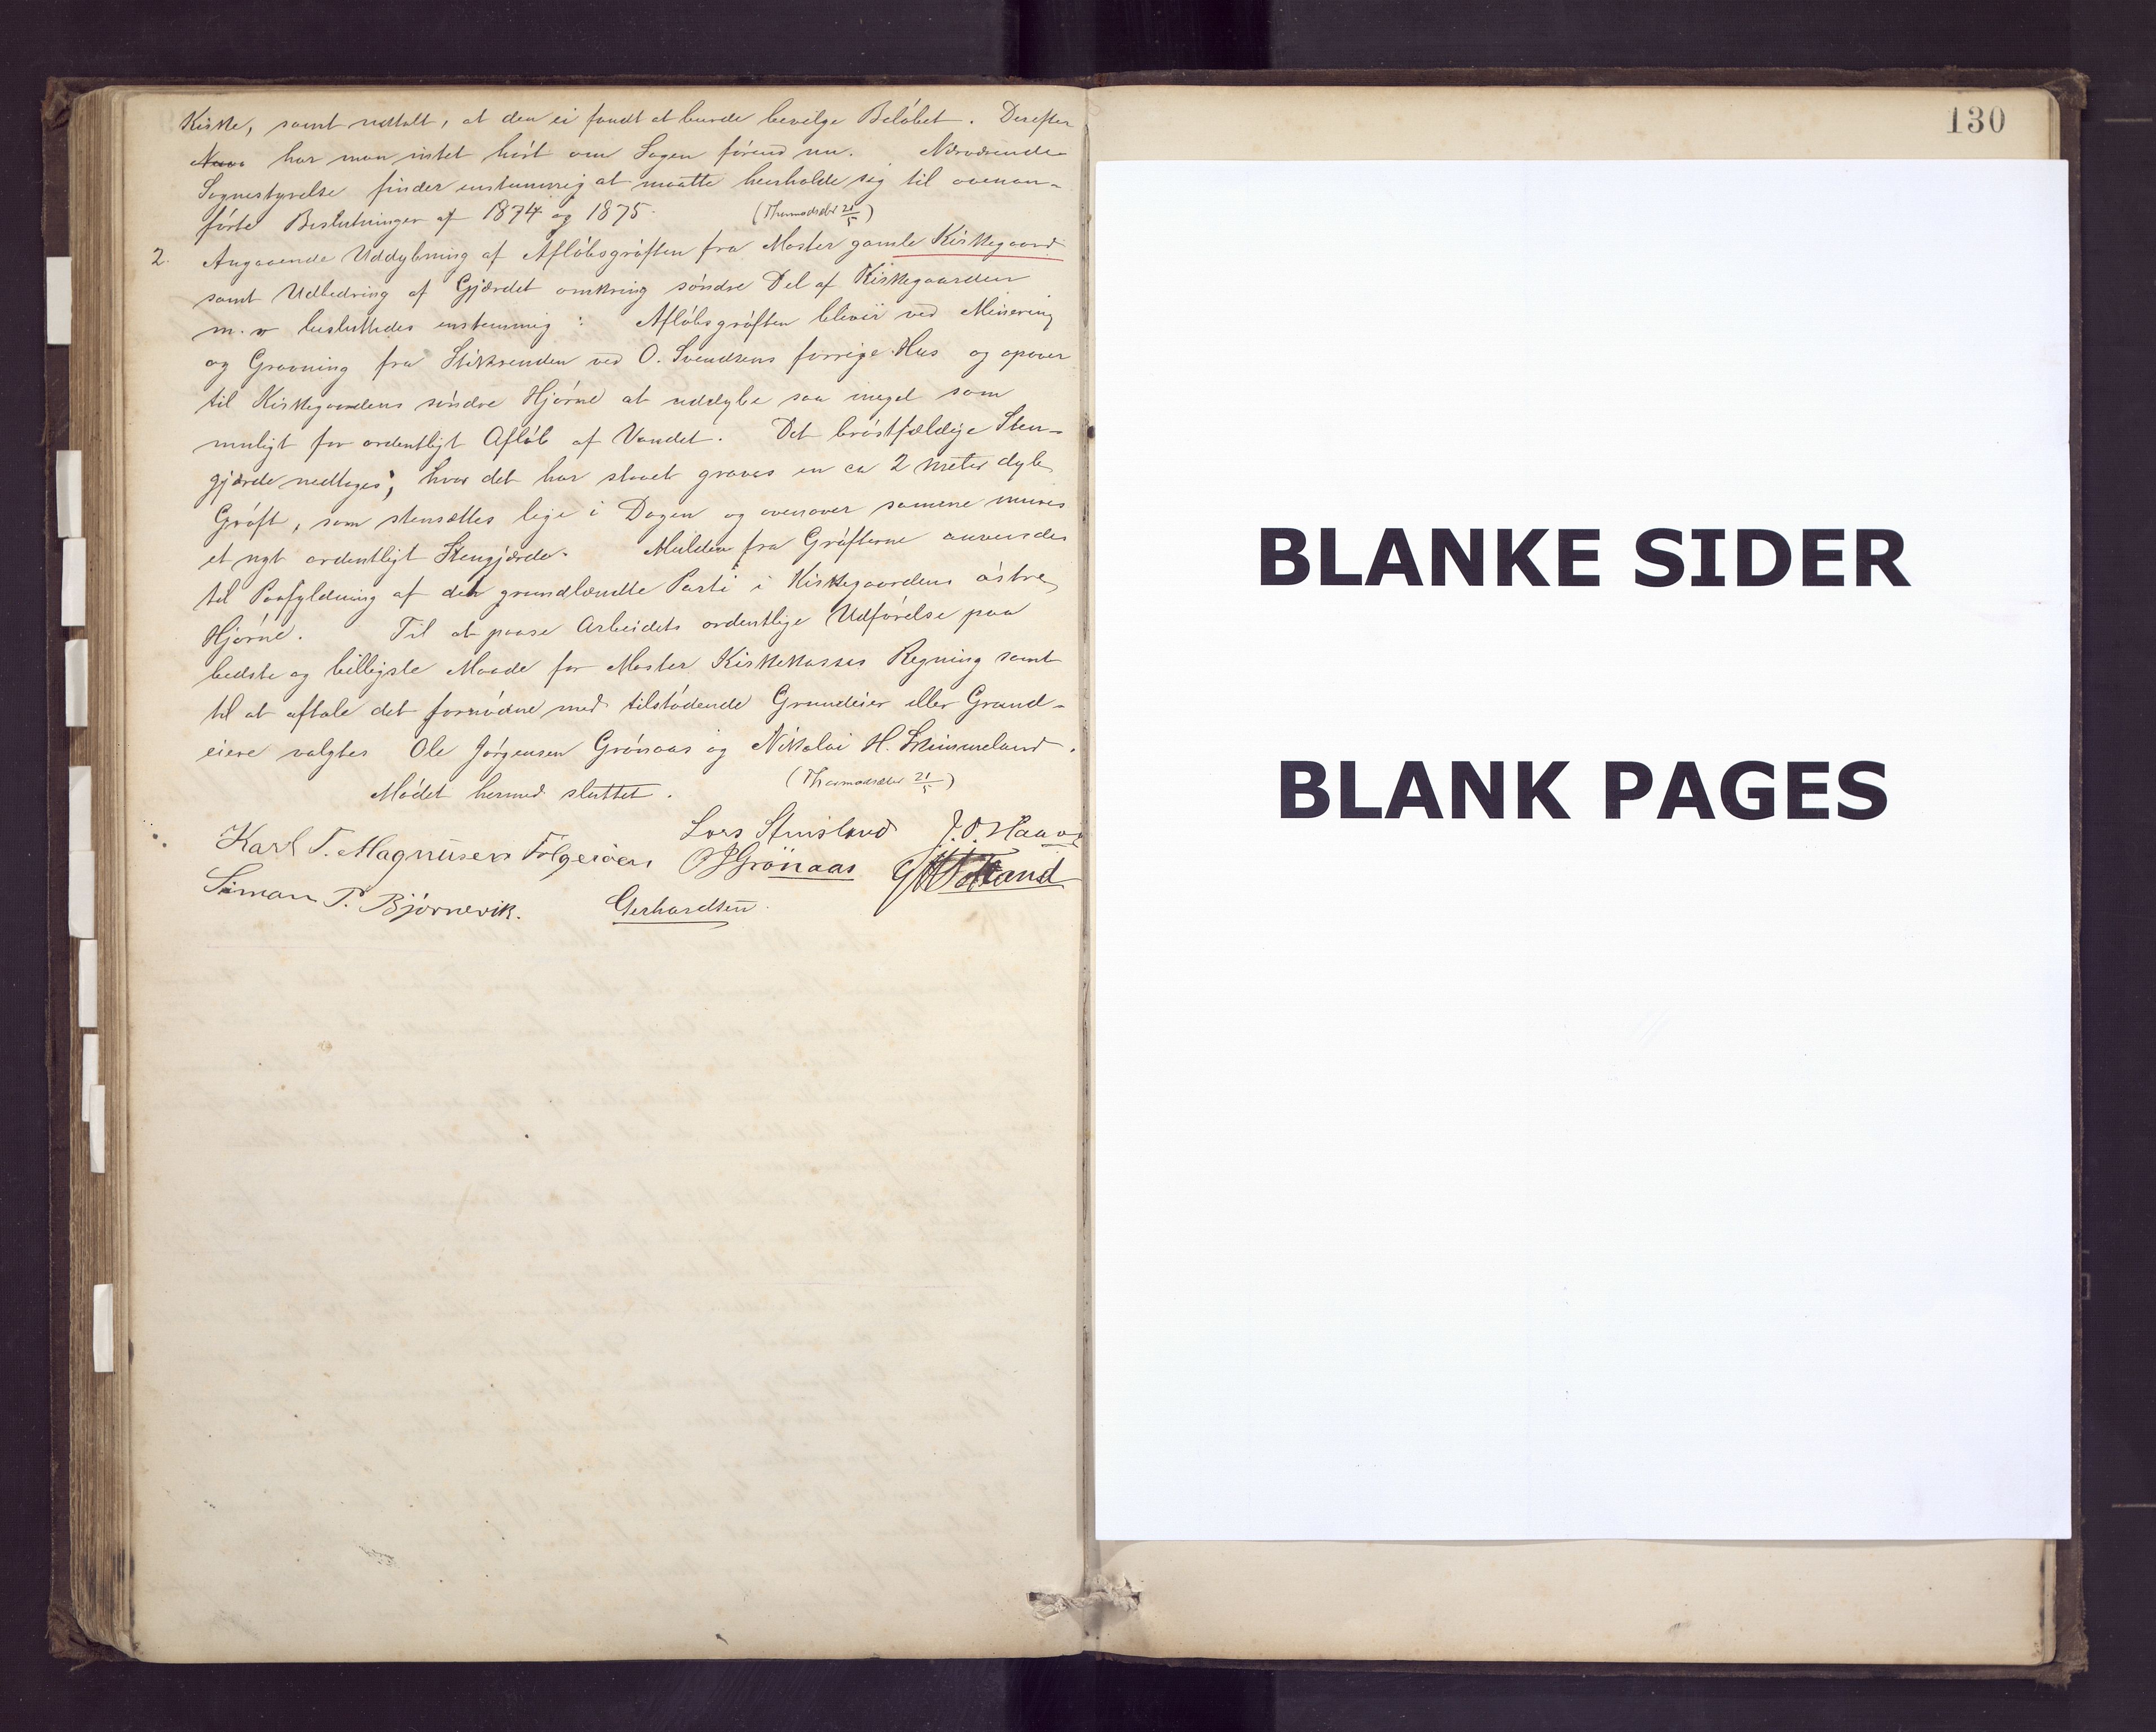 Kirke, samt udtalt, at den ei fandt at burde bevilge Beløbet. Derefter
har man intet hørt om Sagen førend nu. Nærværende
Sognestyrelse finder enstemmig at maatte henholde sig til ovenan-
førte Beslutninger af 1874 og 1875. (Thermodsæter 21/5)
2. Angaaende Uddybning af Afløbsgrøften fra Moster gamle Kirkegaard
samt Udbedring af Gjærdet omkring søndre Del af Kirkegaarden
m. v besluttedes enstemmig: Afløbsgrøften bliver ved Minering
og Gravning fra Stikrenden ved O. Svendsens forrige Hus og opover
til Kirkegaardens søndre Hjørne at uddybe saa meget som
muligt for ordentligt Afløb af Vandet. Det brøstfældige Sten-
gjærde nedtages; hvor det har staaet graves en ca 2 meter dyb
Grøft, som stensættes lige i Dagen og ovenover samme mures
et nyt ordentligt Stengjærde. Mulden fra Grøfterne anvendes
til Paafyldning af det grundlændte Parti i Kirkegaardens østre
Hjørne. Til at paase Arbeidets ordentlige Udførelse paa
bedste og billigste Maade for Moster Kirkekasses Regning samt
til at aftale det fornødne med tilstødende Grundeier eller Grund-
eiere valgtes Ole Jørgensen Grønaas og Nikolai H. Skimmeland.
Mødet hermed sluttet. (Thermodsæter 21/5)
Lars Steinsland J. O. Haavig
Karl T. Magnusen Folgerøen O J Grönaas
Siman P. Bjørnevik. Gerhardtsen
130
BLANKE SIDER
BLANK PAGES